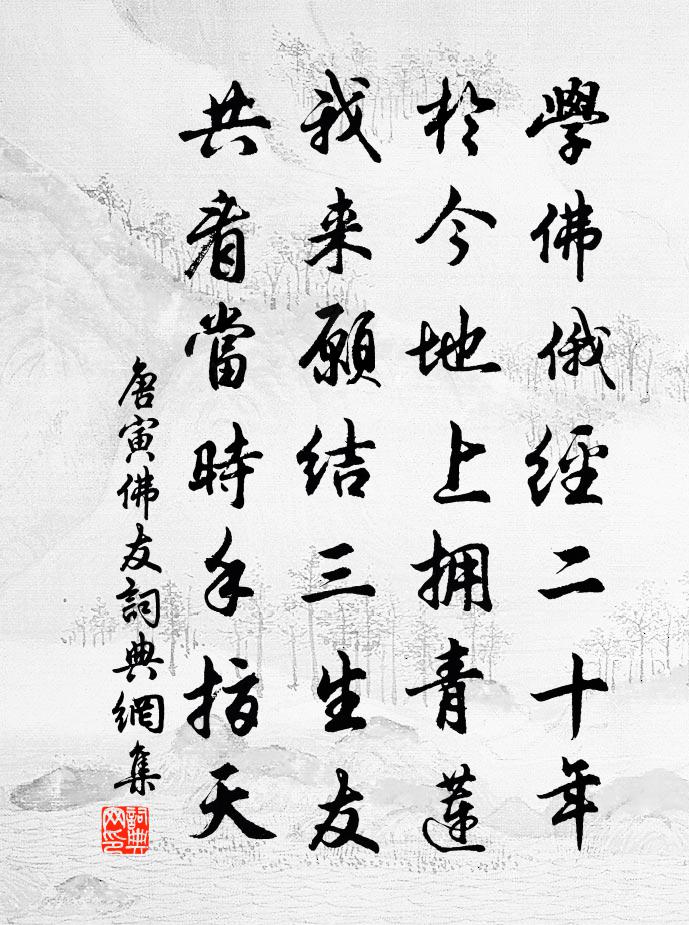 學佛俄經二十年
於今地上拥青蓮
我来願结三生友
共看當時手指天
唐寅佛友詞典網集
詞典網印